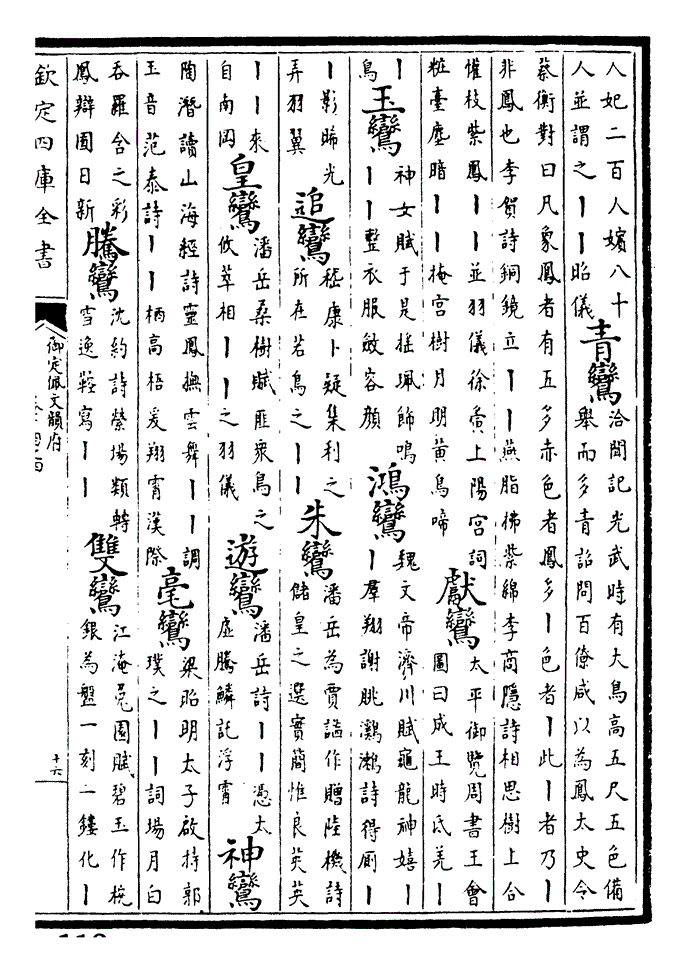 人妃二百人嬪八十
人並謂之丨丨昭儀
青鸞
洽聞記光武時有大鳥高五尺五色備
舉而多青詔問百僚咸以為鳳太史令
蔡衡對曰凡象鳳者有五多赤色者鳳多丨色者丨此丨者乃丨
非鳳也李賀詩銅鏡立丨丨燕脂拂紫綿李商隱詩相思樹上合
懽枝紫鳳丨丨並羽儀徐夤上陽宮詞
粧臺塵暗丨丨掩宮樹月明黃鳥啼
獻鸞
太平御覽周書王會
圖曰成王時氐羌丨
丨
鳥
玉鸞
神女賦于是搖珮飾鳴
丨丨整衣服斂容顔
鴻鸞
魏文帝濟川賦龜龍神嬉丨
丨羣翔謝朓鸂鶒詩得厠丨
丨影晞光
弄羽翼
追鸞
嵇康卜疑集利之
所在若鳥之丨丨
朱鸞
潘岳為賈謐作贈陸機詩
儲皇之選實簡惟良英英
丨丨來
自南岡
皇鸞
潘岳桑樹賦匪衆鳥之
攸萃相丨丨之羽儀
遊鸞
潘岳詩丨丨憑太
虛騰鱗託浮霄
神鸞
陶潛讀山海經詩靈鳳撫雲舞丨丨調
玉音范泰詩丨丨栖高梧爰翔霄漢際
毫鸞
梁昭明太子啟持郭
璞之丨丨詞塲月白
吞羅含之彩
鳳辯囿日新
騰鸞
沈約詩縈塲類轉
雪逸鞚寫丨丨
雙鸞
江淹兔園賦碧玉作梡
銀為盤一刻一鏤化丨
欽定四庫全書
御定佩文韻府
十六